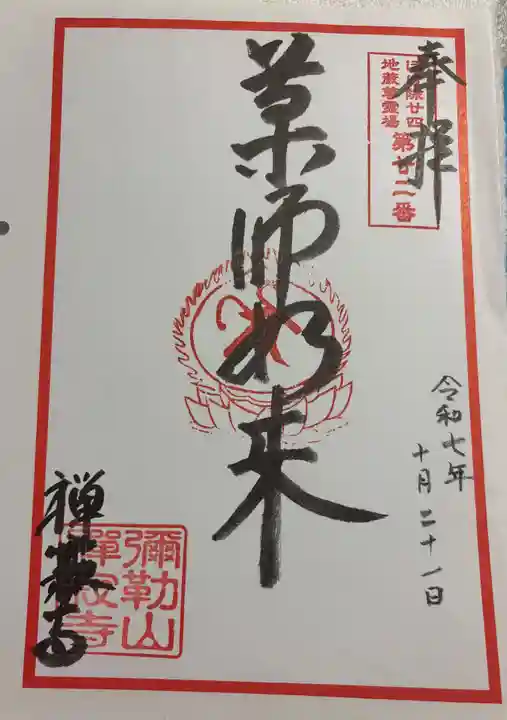 奉拝
ほ
廿四
地蔵尊霊場
第廿二番
薬師如来
令和七年
十月二十一日
彌勒山
禅
寺